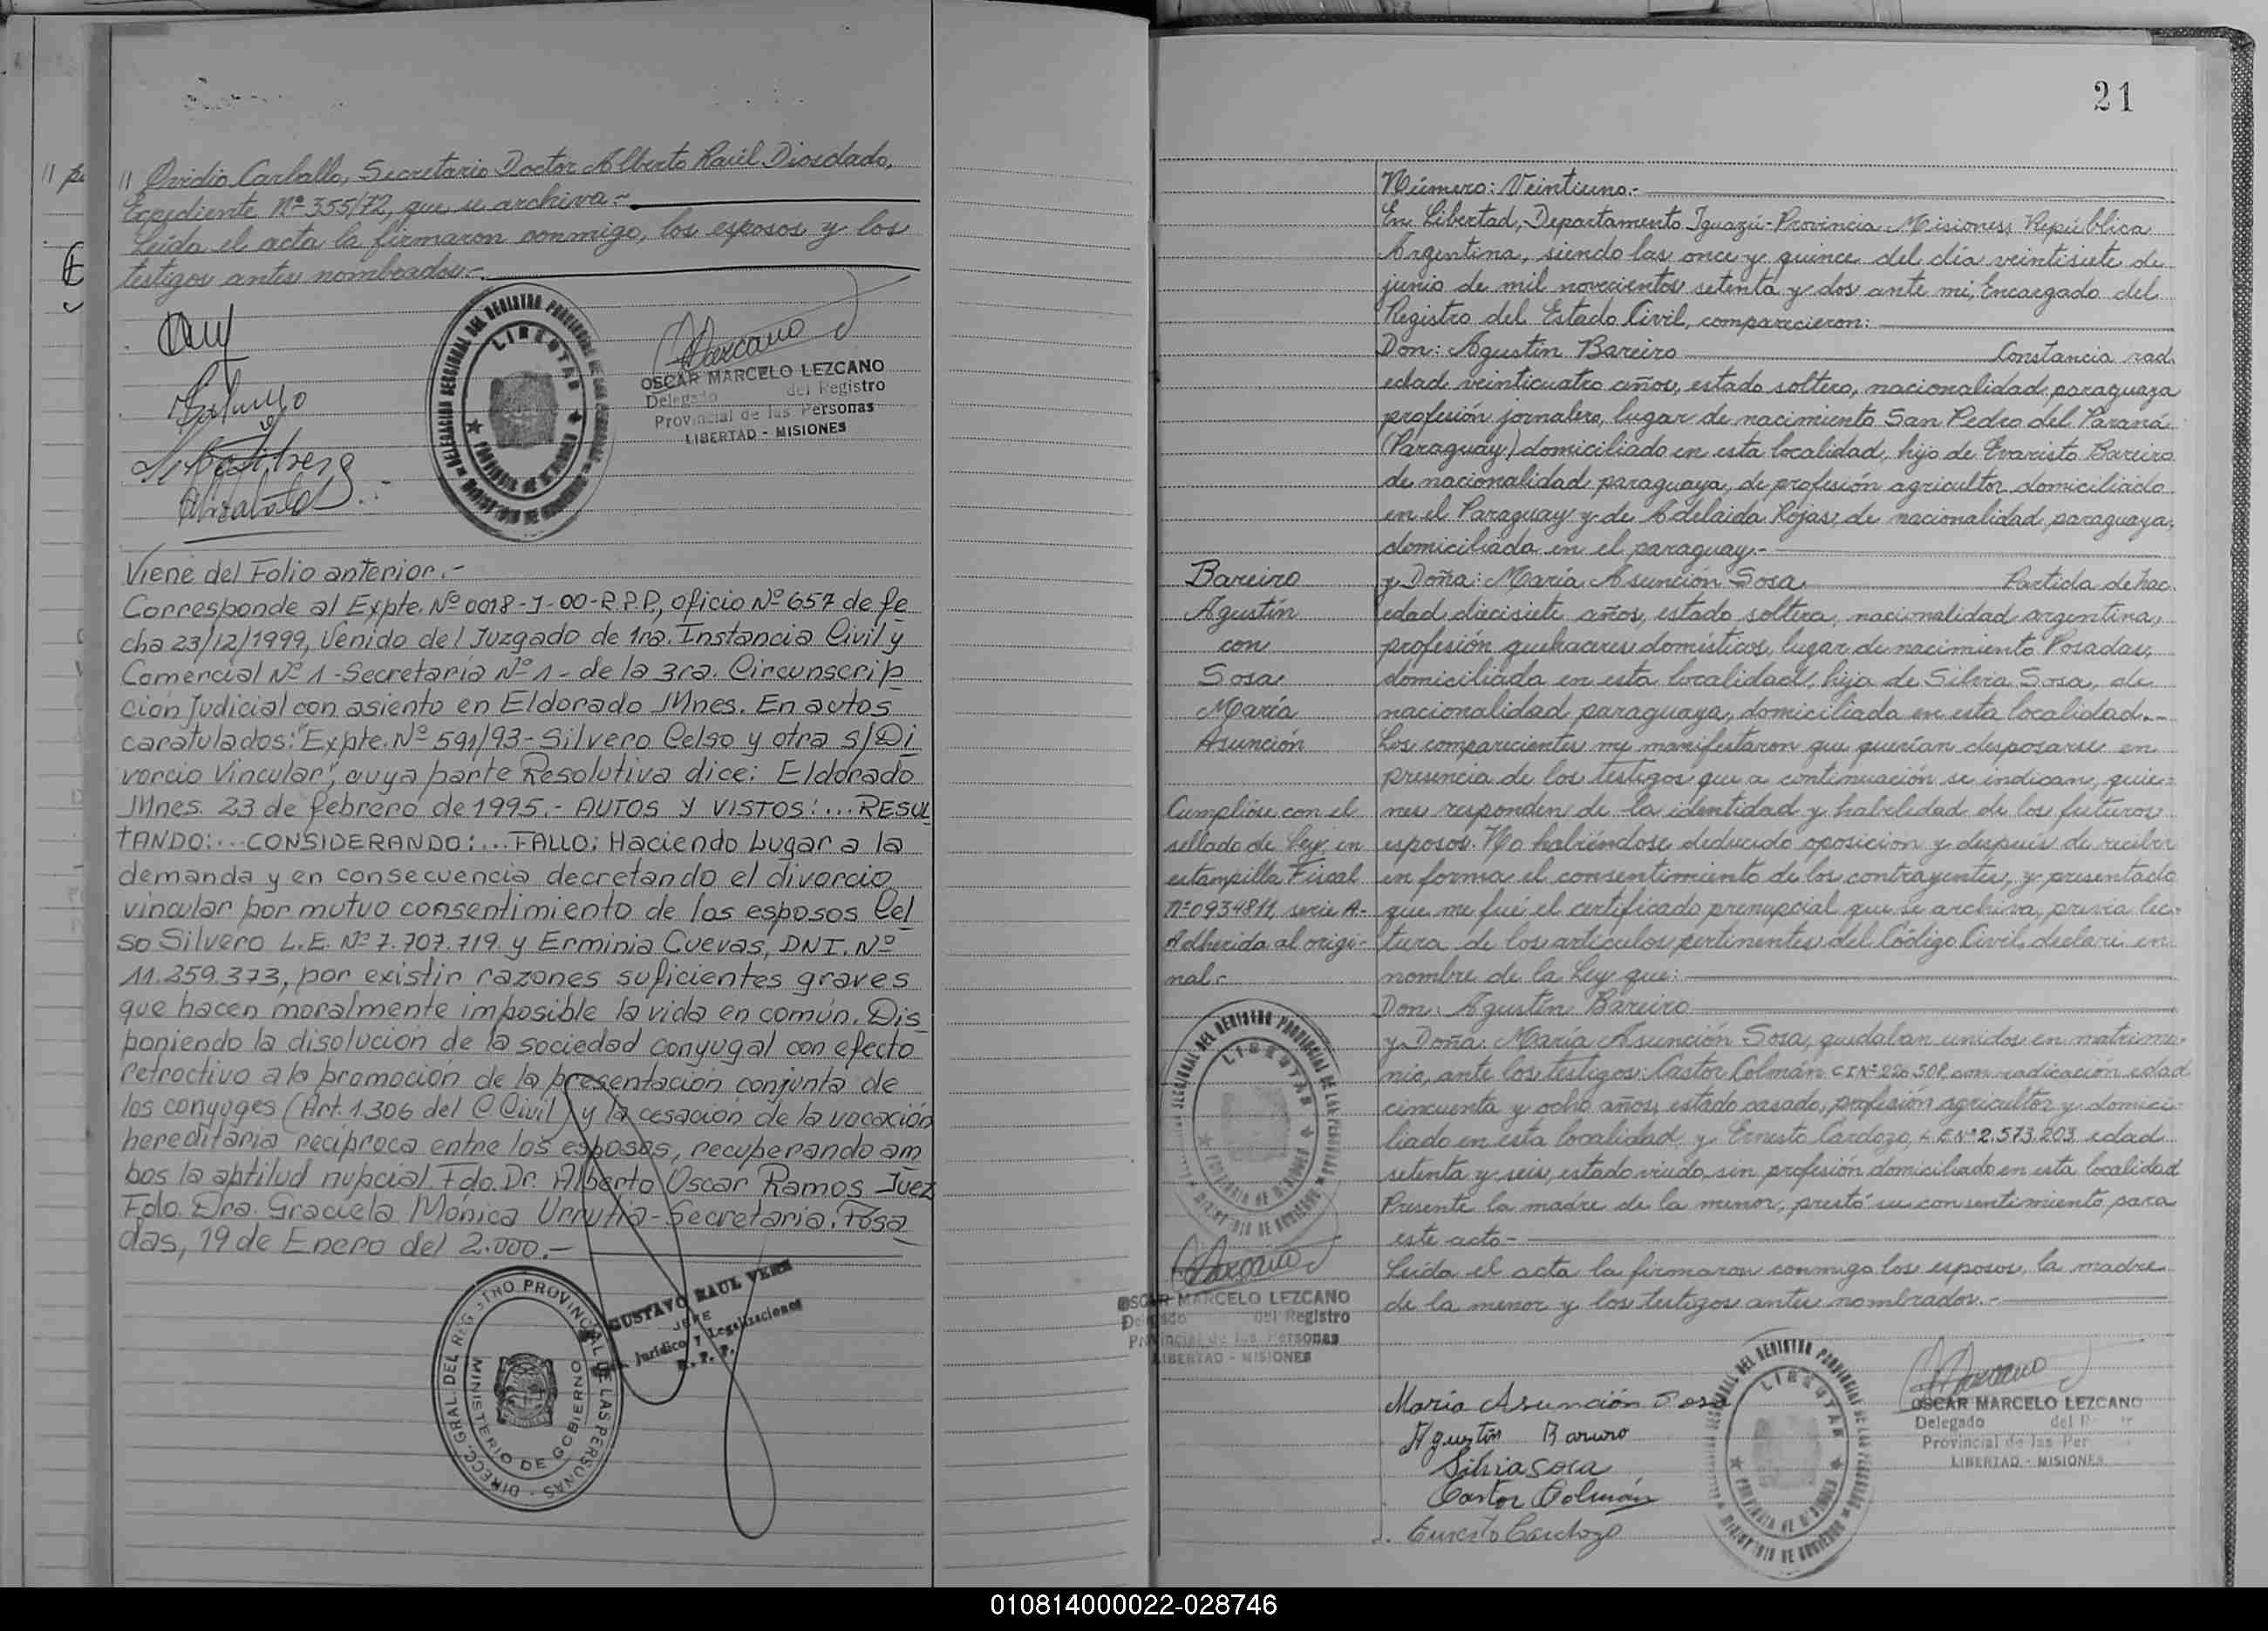 // Ovidio Carballo, Secretario Doctor Alberto Raúl Diosdado,
Expediente Nº 355/72, que se archiva.-
Leída el acta la firmaron conmigo, los esposos y los
testigos antes nombrados.-
DELEGACION SECCIONAL DEL REGISTRO PROVINCIAL DE LAS PERSONAS
LIBERTAD
PROVINCIA DE MISIONES
MINISTERIO DE GOBIERNO
OSCAR MARCELO LEZCANO
Delegado del Registro
Provincial de las Personas
LIBERTAD - MISIONES
Viene del Folio anterior.-
Corresponde al Expte. Nº 0018-J-00-R.P.P., oficio Nº 657 de fe
cha 23/12/1999, Venido del Juzgado de 1ra. Instancia Civil y
Comercial Nº 1 -Secretaría Nº 1 - de la 3ra. Circunscrip
ción Judicial con asiento en Eldorado Mnes. En autos
caratulados: "Expte. Nº 591/93 - Silvero Celso y otra s/Di
vorcio Vincular", cuya parte Resolutiva dice: Eldorado
Mnes. 23 de febrero de 1995.- AUTOS Y VISTOS:... RESUL
TANDO:... CONSIDERANDO:... FALLO: Haciendo Lugar a la
demanda y en consecuencia decretando el divorcio
vincular por mutuo consentimiento de los esposos Cel
so Silvero L.E. Nº 7.707.719 y Erminia Cuevas, DNI. Nº
11.259.373, por existir razones suficientes graves
que hacen moralmente imposible la vida en común. Dis
poniendo la disolución de la sociedad conyugal con efecto
retroctivo a la promoción de la presentación conjunta de
los conyuges (Art. 1.306 del C Civil) y la cesación de la vocación
hereditaria recíproca entre los esposos, recuperando am
bos la aptitud nupcial. Fdo. Dr. Alberto Oscar Ramos Juez
Fdo. Dra. Graciela Mónica Urrutia - Secretaria. Posa
das, 19 de Enero del 2.000.-
GUSTAVO RAUL VERA
JEFE
Jurídico y Legalizaciones
R. P. P.
DIRECC. GRAL. DEL REGISTRO PROVINCIAL DE LAS PERSONAS
MINISTERIO DE GOBIERNO
21
Número: Veintiuno.-
En Libertad, Departamento Iguazú - Provincia Misiones, República
Argentina, siendo las once y quince del día veintisiete de
junio de mil novecientos setenta y dos ante mi, Encargado del
Registro del Estado Civil, comparecieron:
Don: Agustín Bareiro Constancia rad.
edad veinticuatro años, estado soltero, nacionalidad paraguaya
profesión jornalero, lugar de nacimiento San Pedro del Paraná
(Paraguay) domiciliado en esta localidad, hijo de Evaristo Bareiro
de nacionalidad paraguaya, de profesión agricultor domiciliado
en el Paraguay y de Adelaida Rojas, de nacionalidad paraguaya,
domiciliada en el paraguay.-
y Doña: María Asunción Sosa Partida de nac.
edad diecisiete años, estado soltera, nacionalidad argentina,
profesión quehaceres domésticos, lugar de nacimiento Posadas,
domiciliada en esta localidad, hija de Silvia Sosa, de
nacionalidad paraguaya, domiciliada en esta localidad.-
Los comparecientes me manifestaron que querían desposarse en
presencia de los testigos que a continuación se indican, quie-
nes responden de la identidad y habilidad de los futuros
esposos. No habiéndose deducido oposición y después de recibir
en forma el consentimiento de los contrayentes, y presentado
que me fué el certificado prenupcial que se archiva, previa lec-
tura de los artículos pertinentes del Código Civil, declaré en
nombre de la Ley que:
Don: Agustín Bareiro
y Doña: María Asunción Sosa, quedaban unidos en matrimo-
nio, ante los testigos: Castor Colmán C.I Nº 226.508 con radicación edad
cincuenta y ocho años, estado casado, profesión agricultor y domici-
liado en esta localidad y Ernesto Cardozo, L.E Nº 2.573.203 edad
setenta y seis, estado viudo, sin profesión domiciliado en esta localidad
Presente la madre de la menor, prestó su consentimiento para
este acto-
Leída el acta la firmaron conmigo los esposos, la madre
de la menor y los testigos antes nombrados.-
Bareiro
Agustín
con
Sosa
María
Asunción
Cumplióse con el
sellado de Ley, en
estampilla Fiscal
Nº 0934811 serie A-
Adherida al origi-
nal.-
OSCAR MARCELO LEZCANO
Delegado del Registro
Provincial de las Personas
LIBERTAD - MISIONES
María Asunción Sosa
Agustín Bareiro
Silvia Sosa
Castor Colmán
Ernesto Cardozo
OSCAR MARCELO LEZCANO
Delegado del R
Provincial de las Per
LIBERTAD - MISIONES
010814000022-028746